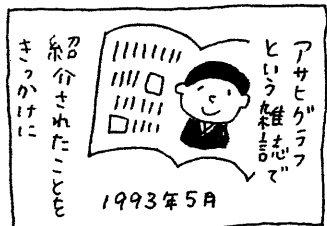 アサヒグラフ
という雑誌で
紹介されたことを
きっかけに
1993年5月